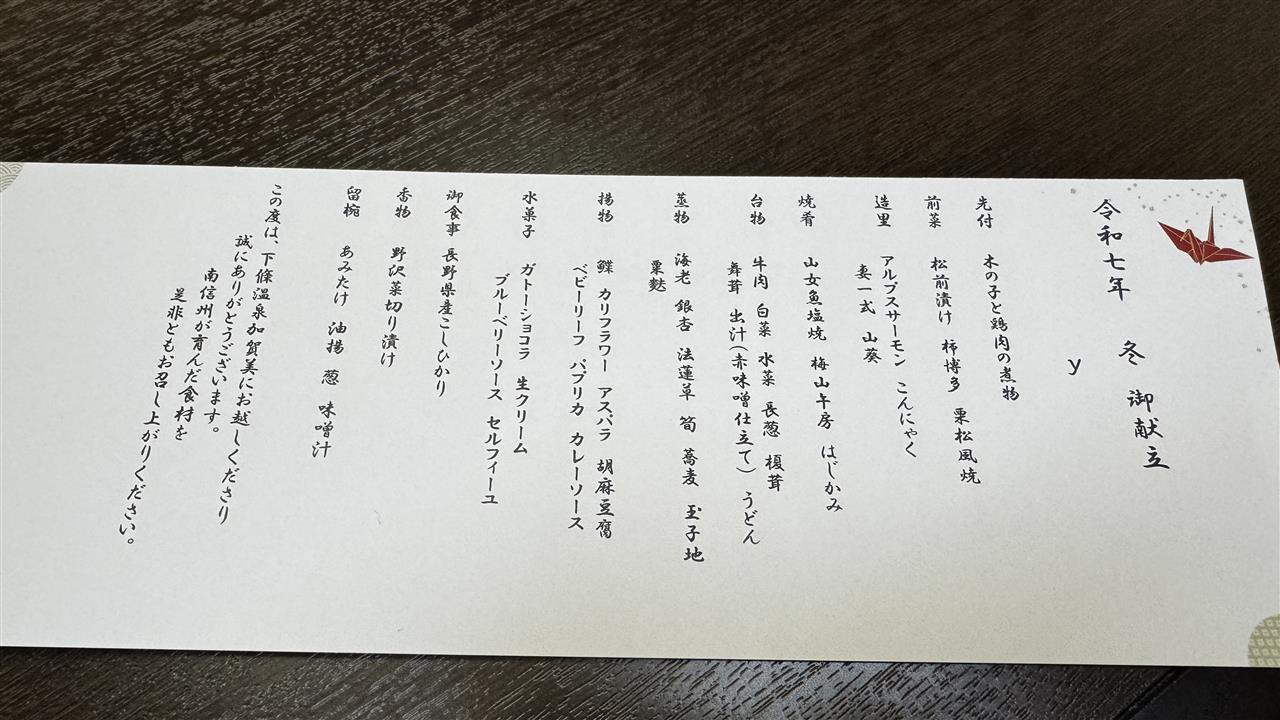 令和七年 冬 御献立
y
先付 木の子と鶏肉の煮物
前菜 松前漬け 柿博多 栗松風焼
造里 アルプスサーモン こんにゃく
妻一式 山葵
焼肴 山女魚塩焼 梅山午房 はじかみ
台物 牛肉 白菜 水菜 長葱 榎茸
舞茸 出汁(赤味噌仕立て) うどん
蒸物 海老 銀杏 法蓮草 筍 蕎麦 玉子地
粟麩
揚物 鰈 カリフラワー アスパラ 胡麻豆腐
ベビーリーフ パプリカ カレーソース
水菓子 ガトーショコラ 生クリーム
ブルーベリーソース セルフィーユ
御食事 長野県産こしひかり
香物 野沢菜切り漬け
留椀 あみたけ 油揚 葱 味噌汁
この度は、下條温泉加賀美にお越しくださり
誠にありがとうございます。
南信州が育んだ食材を
是非ともお召し上がりください。